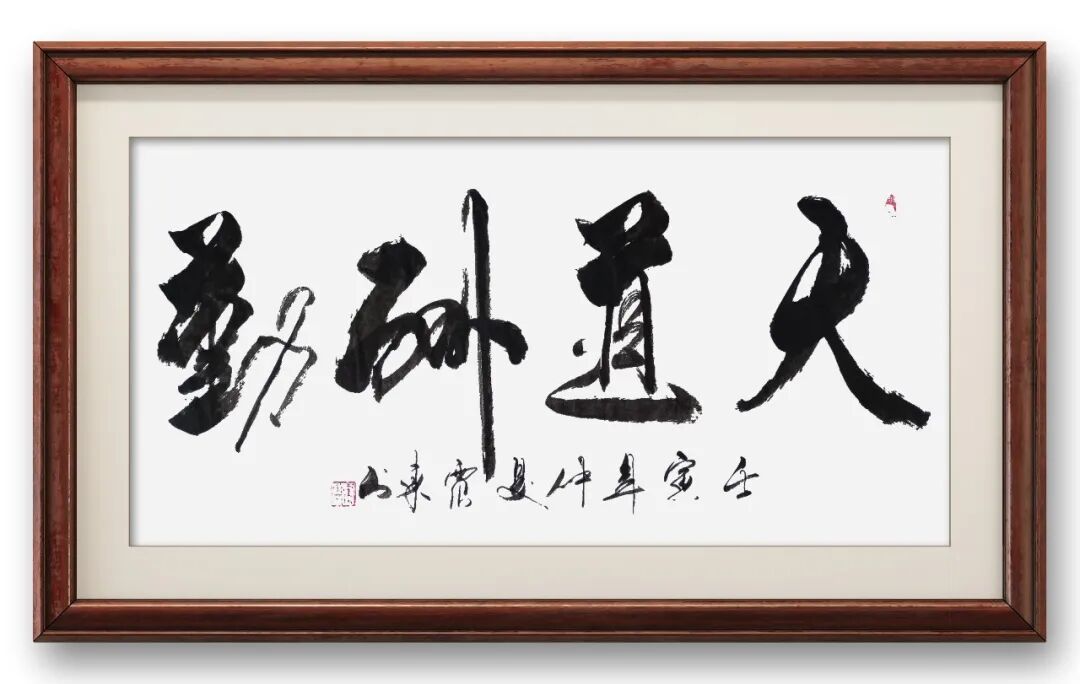 天道酬勤
壬寅年仲夏東书